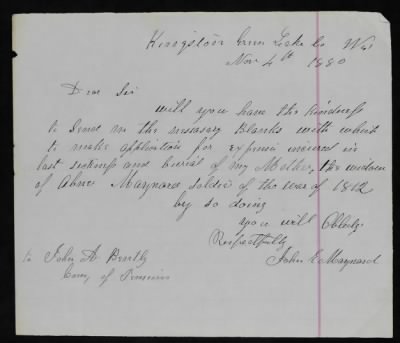 Kingston Green Lake Co Wis
Nov 4th 1880
Dear Sir
will you have the kindness
to send me the nessasary Blanks with which
to make application for expence incured in
last sickness and burial of my Mother, the widow
of Abner Maynard Soldier of the war of 1812
by so doing
you will Oblidge
Respectfully
John E Maynard
to John A Bently
Com, of Pensions